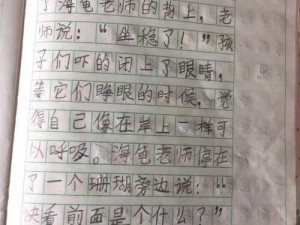 了海龟老师的背上，老
师说：“坐稳了！”孩
子们吓的闭上了眼睛，
等它们睁眼的时候，觉
得自己像在岸上一样可
以呼吸。海龟老师停在
了一个珊瑚旁边说：“
快看前面是个什么？”